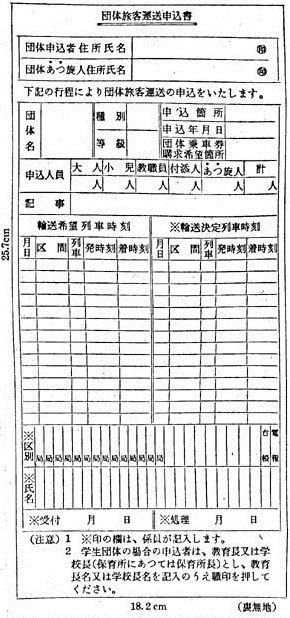 団体旅客運送申込書
団体申込者住所氏名 ㊞
団体あつ旋人住所氏名 ㊞
下記の行程により団体旅客運送の申込をいたします。
団体名 種別 申込箇所
申込年月日
等級 団体乗車券購求希望箇所
申込人員 大人 小児 教職員 付添人 あつ旋人 計
人 人 人 人 人 人
記事
輸送希望列車時刻 ※輸送決定列車時刻
月日 区間 列車 発時刻 着時刻 月日 区間 列車 発時刻 着時刻
※区別 局 局 局 局 局 局 局 局 局 局 局 局 局 台帳 電報
※氏名
※受付 月 日 ※処理 月 日
(注意) 1 ※印の欄は、係員が記入します。
2 学生団体の場合の申込者は、教育長又は学
校長(保育所にあつては保育所長)とし、教育
長名又は学校長名を記入のうえ職印を押して
ください。
25.7cm
18.2cm (裏無地)